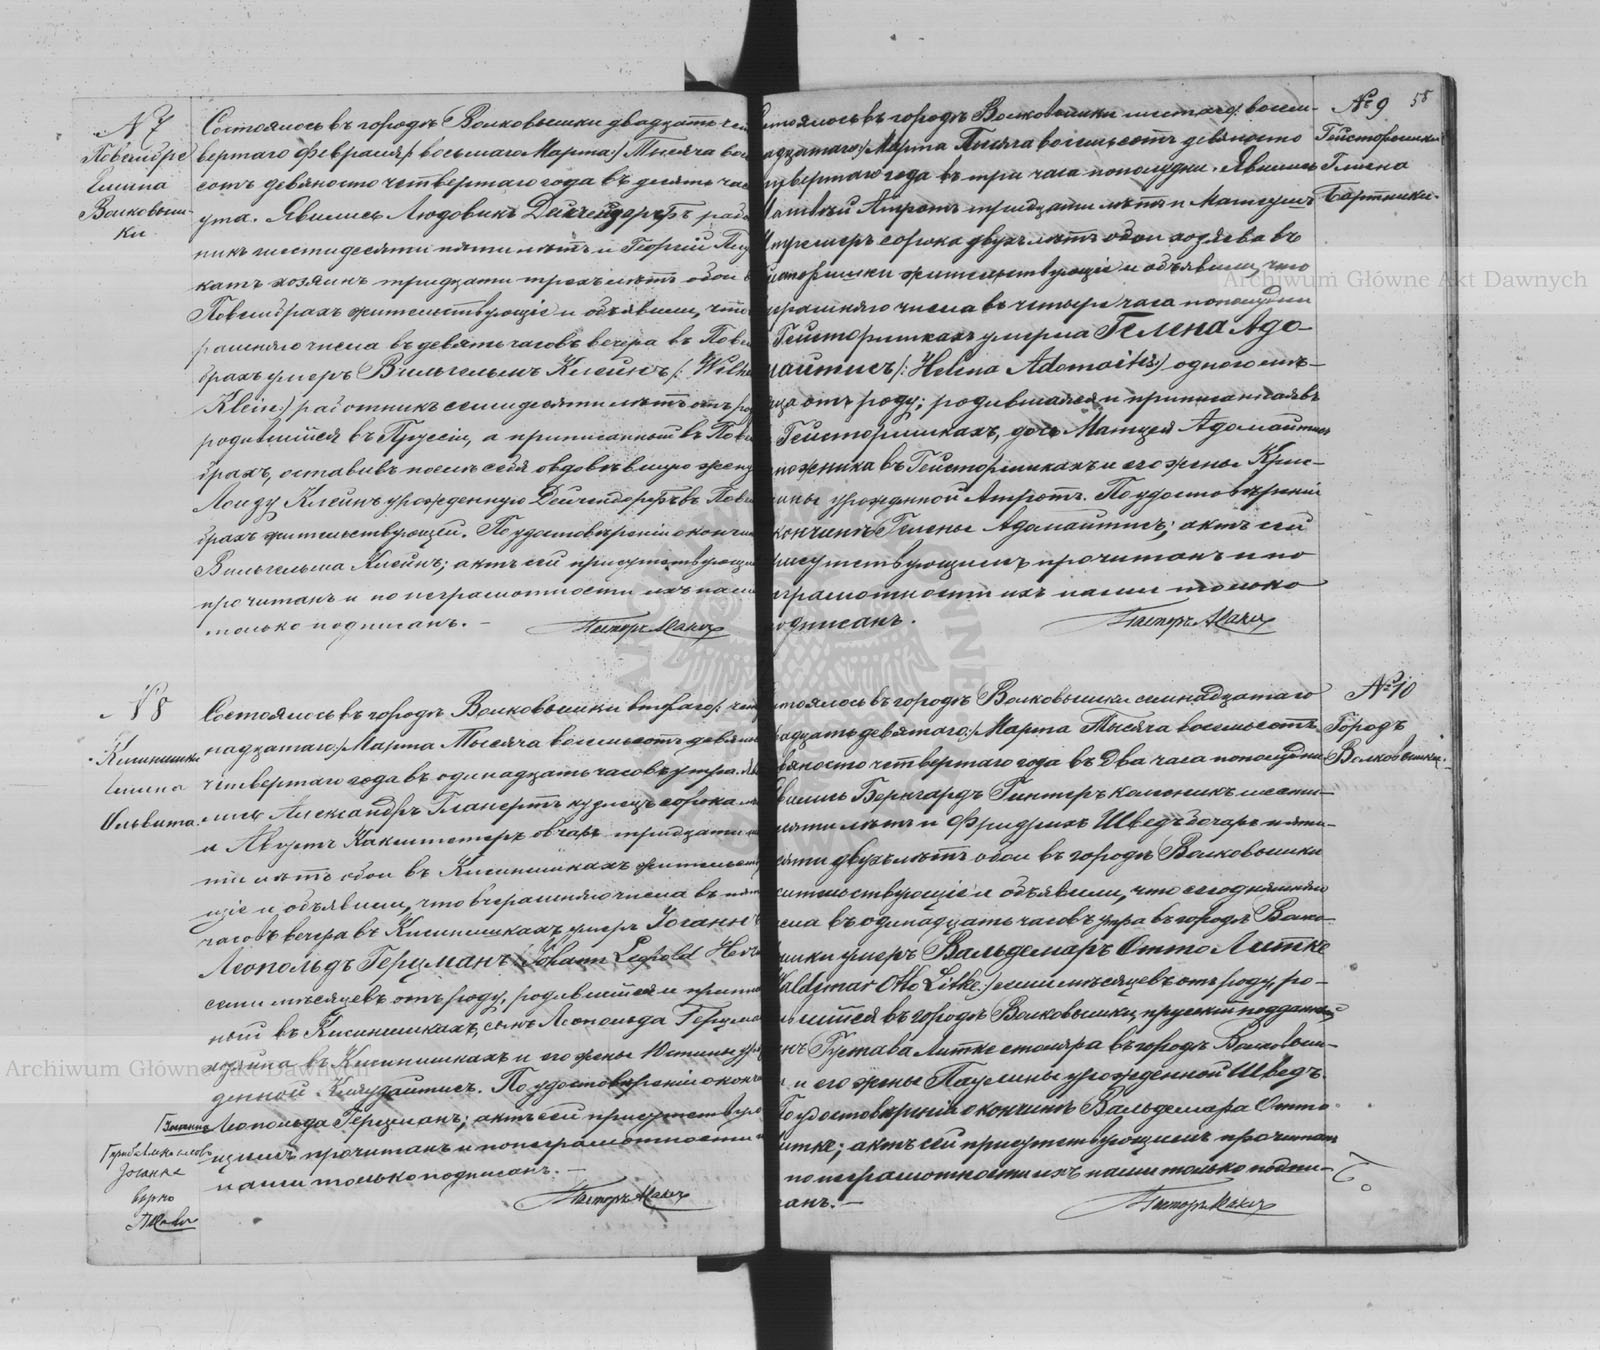 N 7
Повембре
Гмина
Волковыш-
ки
Состоялось въ городѣ Волковышки двадцать чет
вертаго Февраля /: восьмаго Марта :/ Тысяча вос
сотъ девяносто четвертаго года въ десять час
утра. Явились Людовикъ Дейчендорфъ рабо
никъ шестидесяти пяти лѣтъ и Георгій
катъ хозяинъ тридцати трехъ лѣтъ обои в
Повембрахъ жительствующіе и объявили, что
рашняго числа въ девять часовъ вечера въ Пове
брахъ умеръ Вильгельмъ Клейнъ /: Wilhe
Klein :/ работникъ семидесяти лѣтъ отъ ро
родившійся въ Пруссіи, а приписанный въ Пове
брахъ, оставивъ послѣ себя овдовѣвшую жену
Лоизу Клейнъ урожденную Дейчендорфъ въ Пове
брахъ жительствующей. По удостовѣреніи о кончи
Вильгельма Клейнъ; актъ сей присутствующи
прочитанъ и по неграмотности ихъ нами
только подписанъ. –
Пасторъ
N 8
Гмина
Ольвита
Состоялось въ городѣ Волковышки втораго /: чет
надцатаго :/ Марта Тысяча восемьсотъ девян
четвертаго года въ одинадцать часовъ утра. Яв
лись Александръ Гланертъ кузнецъ сорока
и Августъ овчарь тридцати
ти лѣтъ обои въ жительству
щіе и объявили, что вчерашняго числа въ
часовъ вечера въ умеръ Іоганнъ
Леопольдъ Герцманъ Johann Leopold Herz
семи мѣсяцевъ отъ роду, родившійся и припи
ный въ сынъ Леопольда Герцма
хозяина въ и его жены Юстины уро
денной По удостовѣреніи о конч
Іоганна Леопольда Герцманъ; актъ сей присутствую
щимъ прочитанъ и по неграмотности
нами только подписанъ. –
Прибавка слова
Іоганна
вѣрно
Пасторъ
58
№ 9
Гмина
Бартники.
стоялось въ городѣ Волковышки шестаго /: восем-
надцатаго :/ Марта Тысяча восемьсотъ девяносто
четвертаго года въ три часа пополудни. Явились
Атротъ тридцати лѣтъ и
сорока двухъ лѣтъ обои хозяева въ
жительствующіе и объявили, что
черашняго числа въ четыре часа пополудни
умерла Гелена Адо
майтисъ /: Helina Adomaitis :/ одного мѣ-
сяца отъ роду; родившаяся и приписанная въ
дочь Матцея Адомайтисъ
въ и его жены Крис-
тины урожденной Атротъ. По удостовѣреніи
кончинѣ Гелены Адомайтисъ; актъ сей
присутствующимъ прочитанъ и по
неграмотности ихъ нами только
подписанъ.
Пасторъ
№ 10
Городъ
Волковышки.
стоялось въ городѣ Волковышки семнадцатаго
двадцать девятаго :/ Марта Тысяча восемьсотъ
девяносто четвертаго года въ два часа пополудни
Явились Бернгардъ Гинтеръ каменикъ шести-
десяти лѣтъ и Фридрихъ Шведъ бочаръ пяти-
десяти двухъ лѣтъ обои въ городѣ Волковышки
жительствующіе и объявили, что сегодняшняго
числа въ одинадцать часовъ утра въ городѣ Волко-
вышки умеръ Вальдемаръ Отто Литке
Waldemar Otto Litke :/ семи мѣсяцевъ отъ роду, ро-
дившійся въ городѣ Волковышки, прусскій подданный,
сынъ Густава Литке столяра въ городѣ Волковыш-
и его жены Паулины урожденной Шведъ.
По удостовѣреніи о кончинѣ Вальдемара Отто
Литке; актъ сей присутствующимъ прочитанъ
по неграмотности ихъ нами только подпи-
санъ. –
Пасторъ
Archiwum Główne Akt Dawnych
Archiwum Główne Akt Dawnych
Archiwum Główne Akt Dawnych